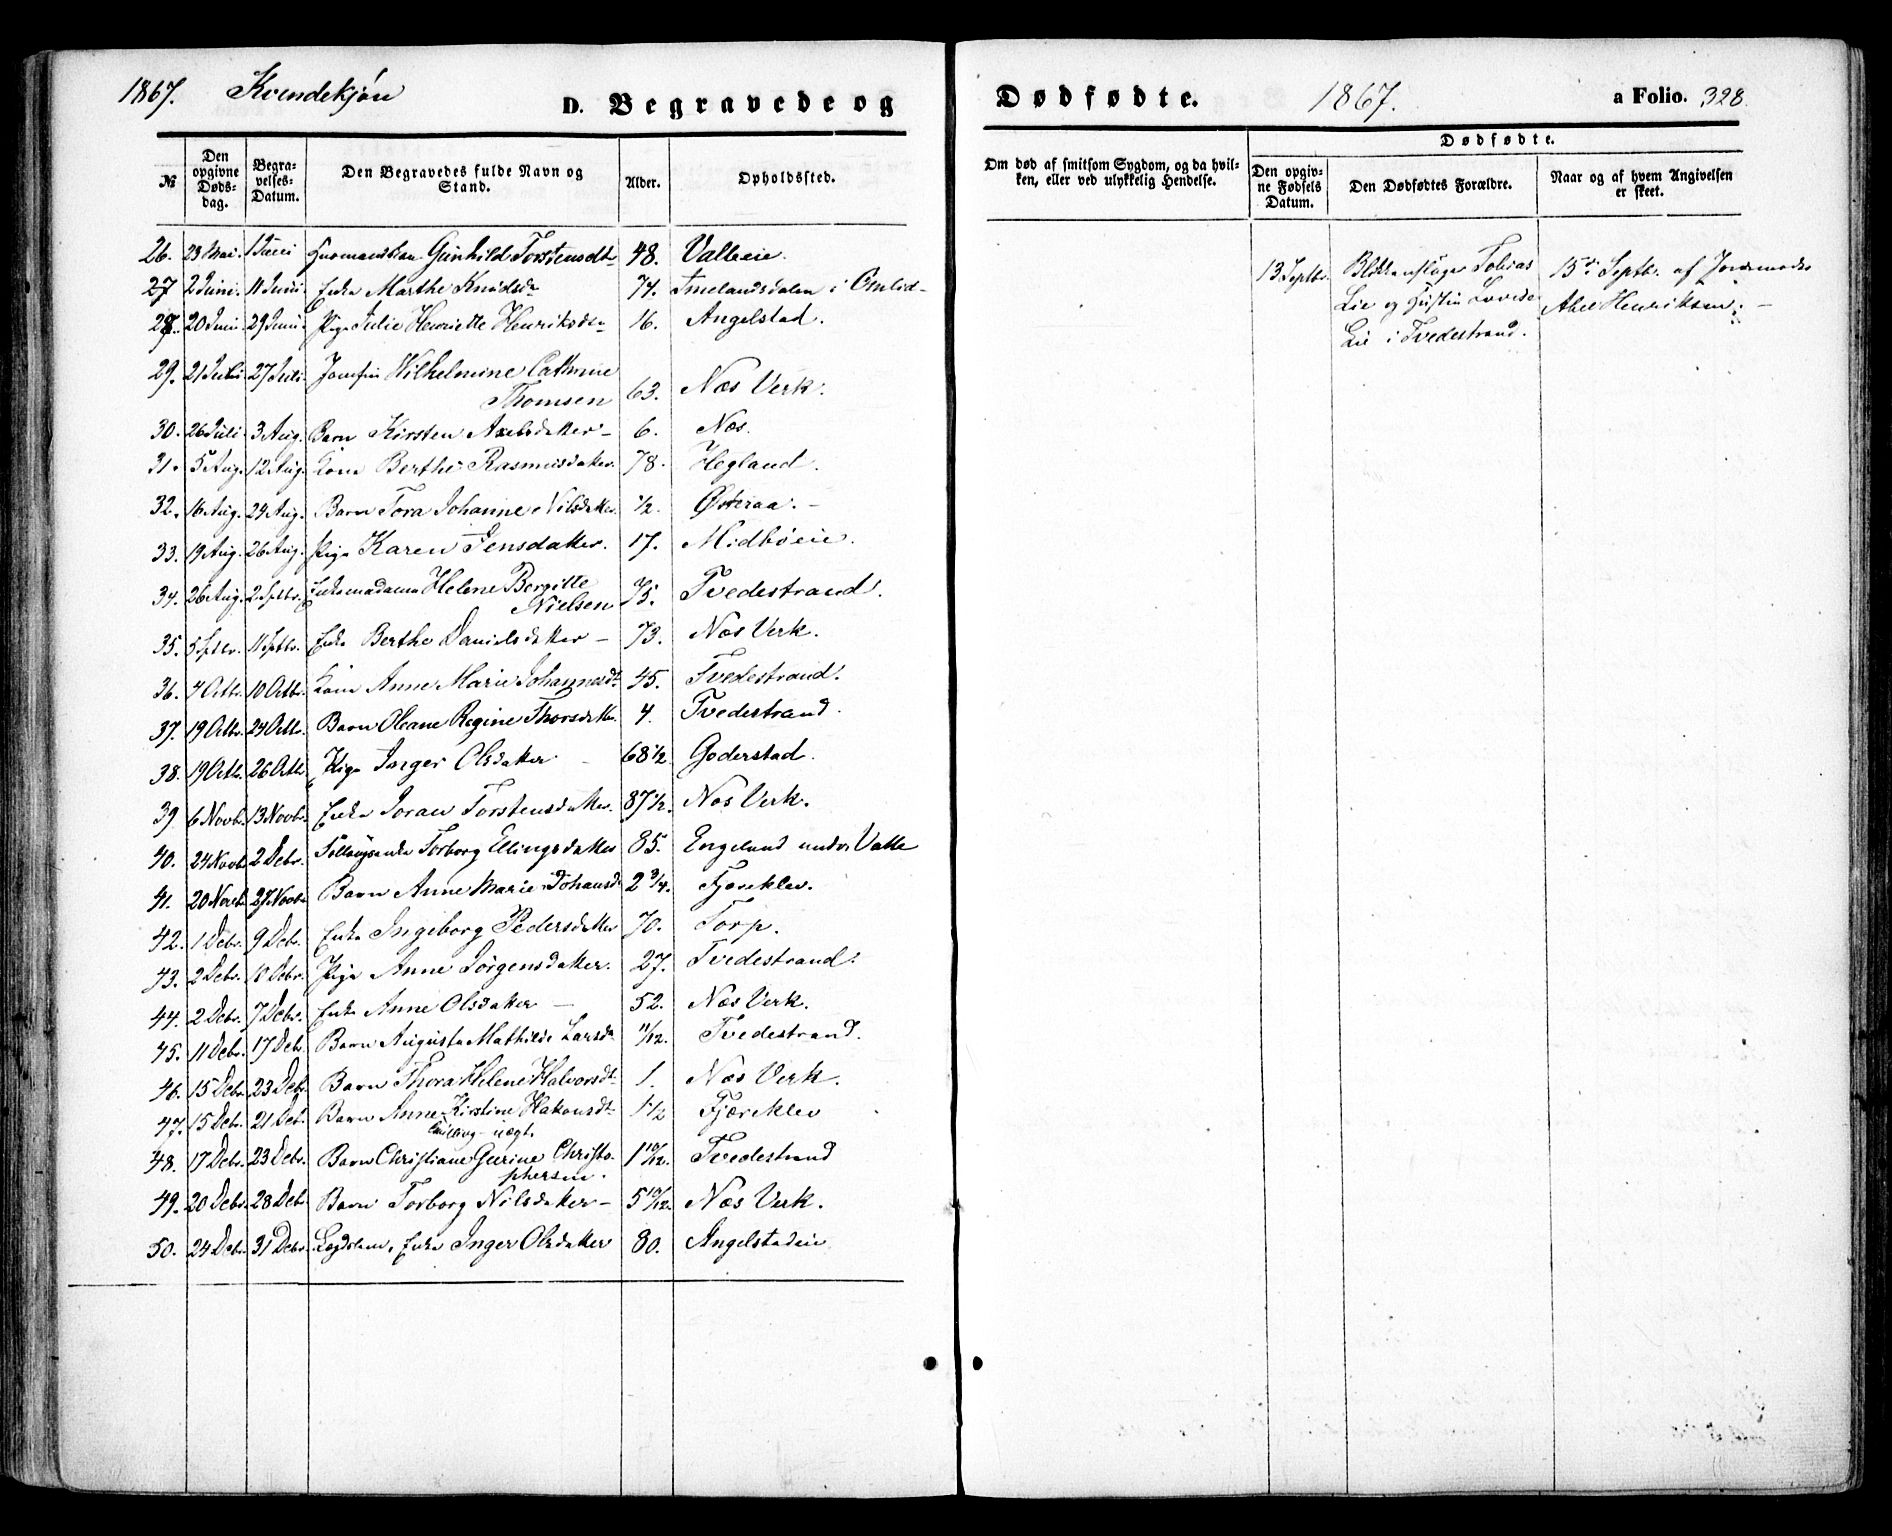 1867. Kvendekjøn D. Begravede og
№ Den opgivne Døds-dag. Begra-velses-Datum. Den Begravedes fulde Navn og Stand. Alder. Opholdssted.
26. 23 Mai. 1 Juni Gunhild Torstensdtr 48. Valleeie.
27 2 Juni. 11 Juni. Enke Marthe Knudsdr 74. i Omlid-
28. 20 Juni 29 Juni. Pige Julie Henriette Henriksdr 16. Angelstad.
29. 21 Juli 27 Juli. Jomfru Wilhelmine Cathrine
Thomsen 63. Næs Verk.
30. 26 Juli 3 Aug. Barn Kirsten Axelsdatter- 6. Næs.
31. 5 Aug. 12 Aug. Kone Berthe Rasmusdatter. 78. Hegland.
32. 16 Aug. 24 Aug. Barn Tora Johanne Nilsdatter ½. Østeraa.-
33. 19 Aug. 26 Aug. Pige Karen Jensdatter. 17. Midbøeie.
34. 26 Aug. 2 Sptbr. Enkemadame Helene Bergitte
Nielsen 75. Tvedestrand.
35. 5 Sptbr. 11 Sptbr. Enke Berthe Danielsdatter - 73. Næs Verk.
36. 4 Octbr. 10 Octbr. Kone Anne Marie Johannesdt 45. Tvedestrand.
37. 19 Octbr. 24 Octbr. Barn Oleane Regine Thorsdatter. 4. Tvedestrand.
38. 19 Octb. 26 Octb. Pige Inger Olsdatter 68½ Goderstad.
39 6 Novb. 13 Novbr. Enke Joran Torstensdatter. 87½. Næs Verk.
40. 24 Novb. 2 Debr. Torborg Ellingsdatter 85. Engelund under Valle
41. 20 Novb. 27 Novb. Barn Anne Marie Johansd 2¾. Fjæreklev.
42. 1 Debr. 9 Debr. Enke Ingeborg Pedersdatter 70. Torp.
43. 2 Debr. 10 Debr. Pige Anne Jørgensdatter. 27. Tvedestrand.
44. 2 Debr. 7 Debr. Enke Anne Olsdatter - 52. Næs Verk.
45. 11 Debr. 17 Debr. Barn Augusta Mathilde Larsda 11/12. Tvedestrand.
46. 15 Debr. 23 Debr. Barn Thora Helene Halvorsdt 1. Næs Verk.
47. 15 Debr. 21 Debr. Barn Anne Kirstine Hakonsdt 1½ Fjæreklev
uægt.
48. 17 Debr. 23 Debr. Barn Christiane Gurine Christo-
phersen. 1 10/12. Tvedestrand
49. 20 Debr. 28 Debr Barn Torborg Nilsdatter- 5 10/12. Næs Verk.
50. 24 Debr. 31 Debr. Lægdslem, Enke Inger Olsdatter 80. Angelstadeie
Dødfødte. 1867. a Folio. 328.
Om død af smitsom Sygdom, og da hvil-ken, eller ved ulykkelig Hendelse. Dødfødte.
Den opgiv-ne Fødsels Datum. Den Dødfødtes Forældre. Naar og af hvem Angivelsen er skeet.
13. Septbr. Blikkenslager Tobias 15de Septbr. af Jordemoder
Lie og Hustru Lovise Abel Henriksen. -
Lie i Tvedestrand.